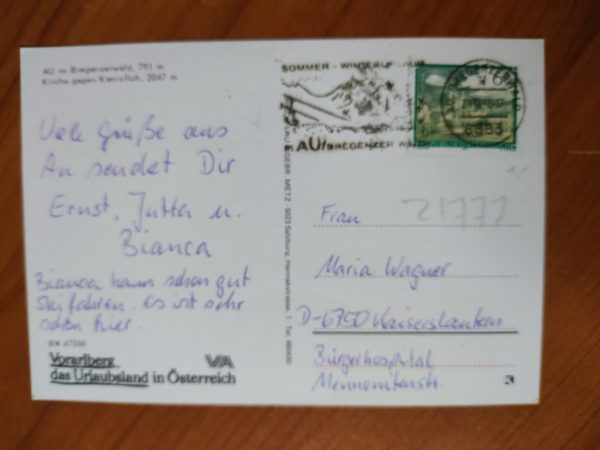 AU im Bregenzerwald, 791 m
Kirche gegen Kanisfluh, 2047 m
Viele Grüße aus
Au sendet Dir
Ernst, Jutta u.
Bianca
Bianca kann schon gut
Skifahren. Es ist sehr
schön hier.
Vorarlberg
das Urlaubsland in Österreich
VA
GEBR. METZ - 5023 Salzburg,
SOMMER - WINTERURLAUB
AU/BREGENZERWALD
6883
21777
1,-
Frau
Maria Wagner
D-6750 Kaiserslautern
Bürgerhospital
Mennonitenstr.